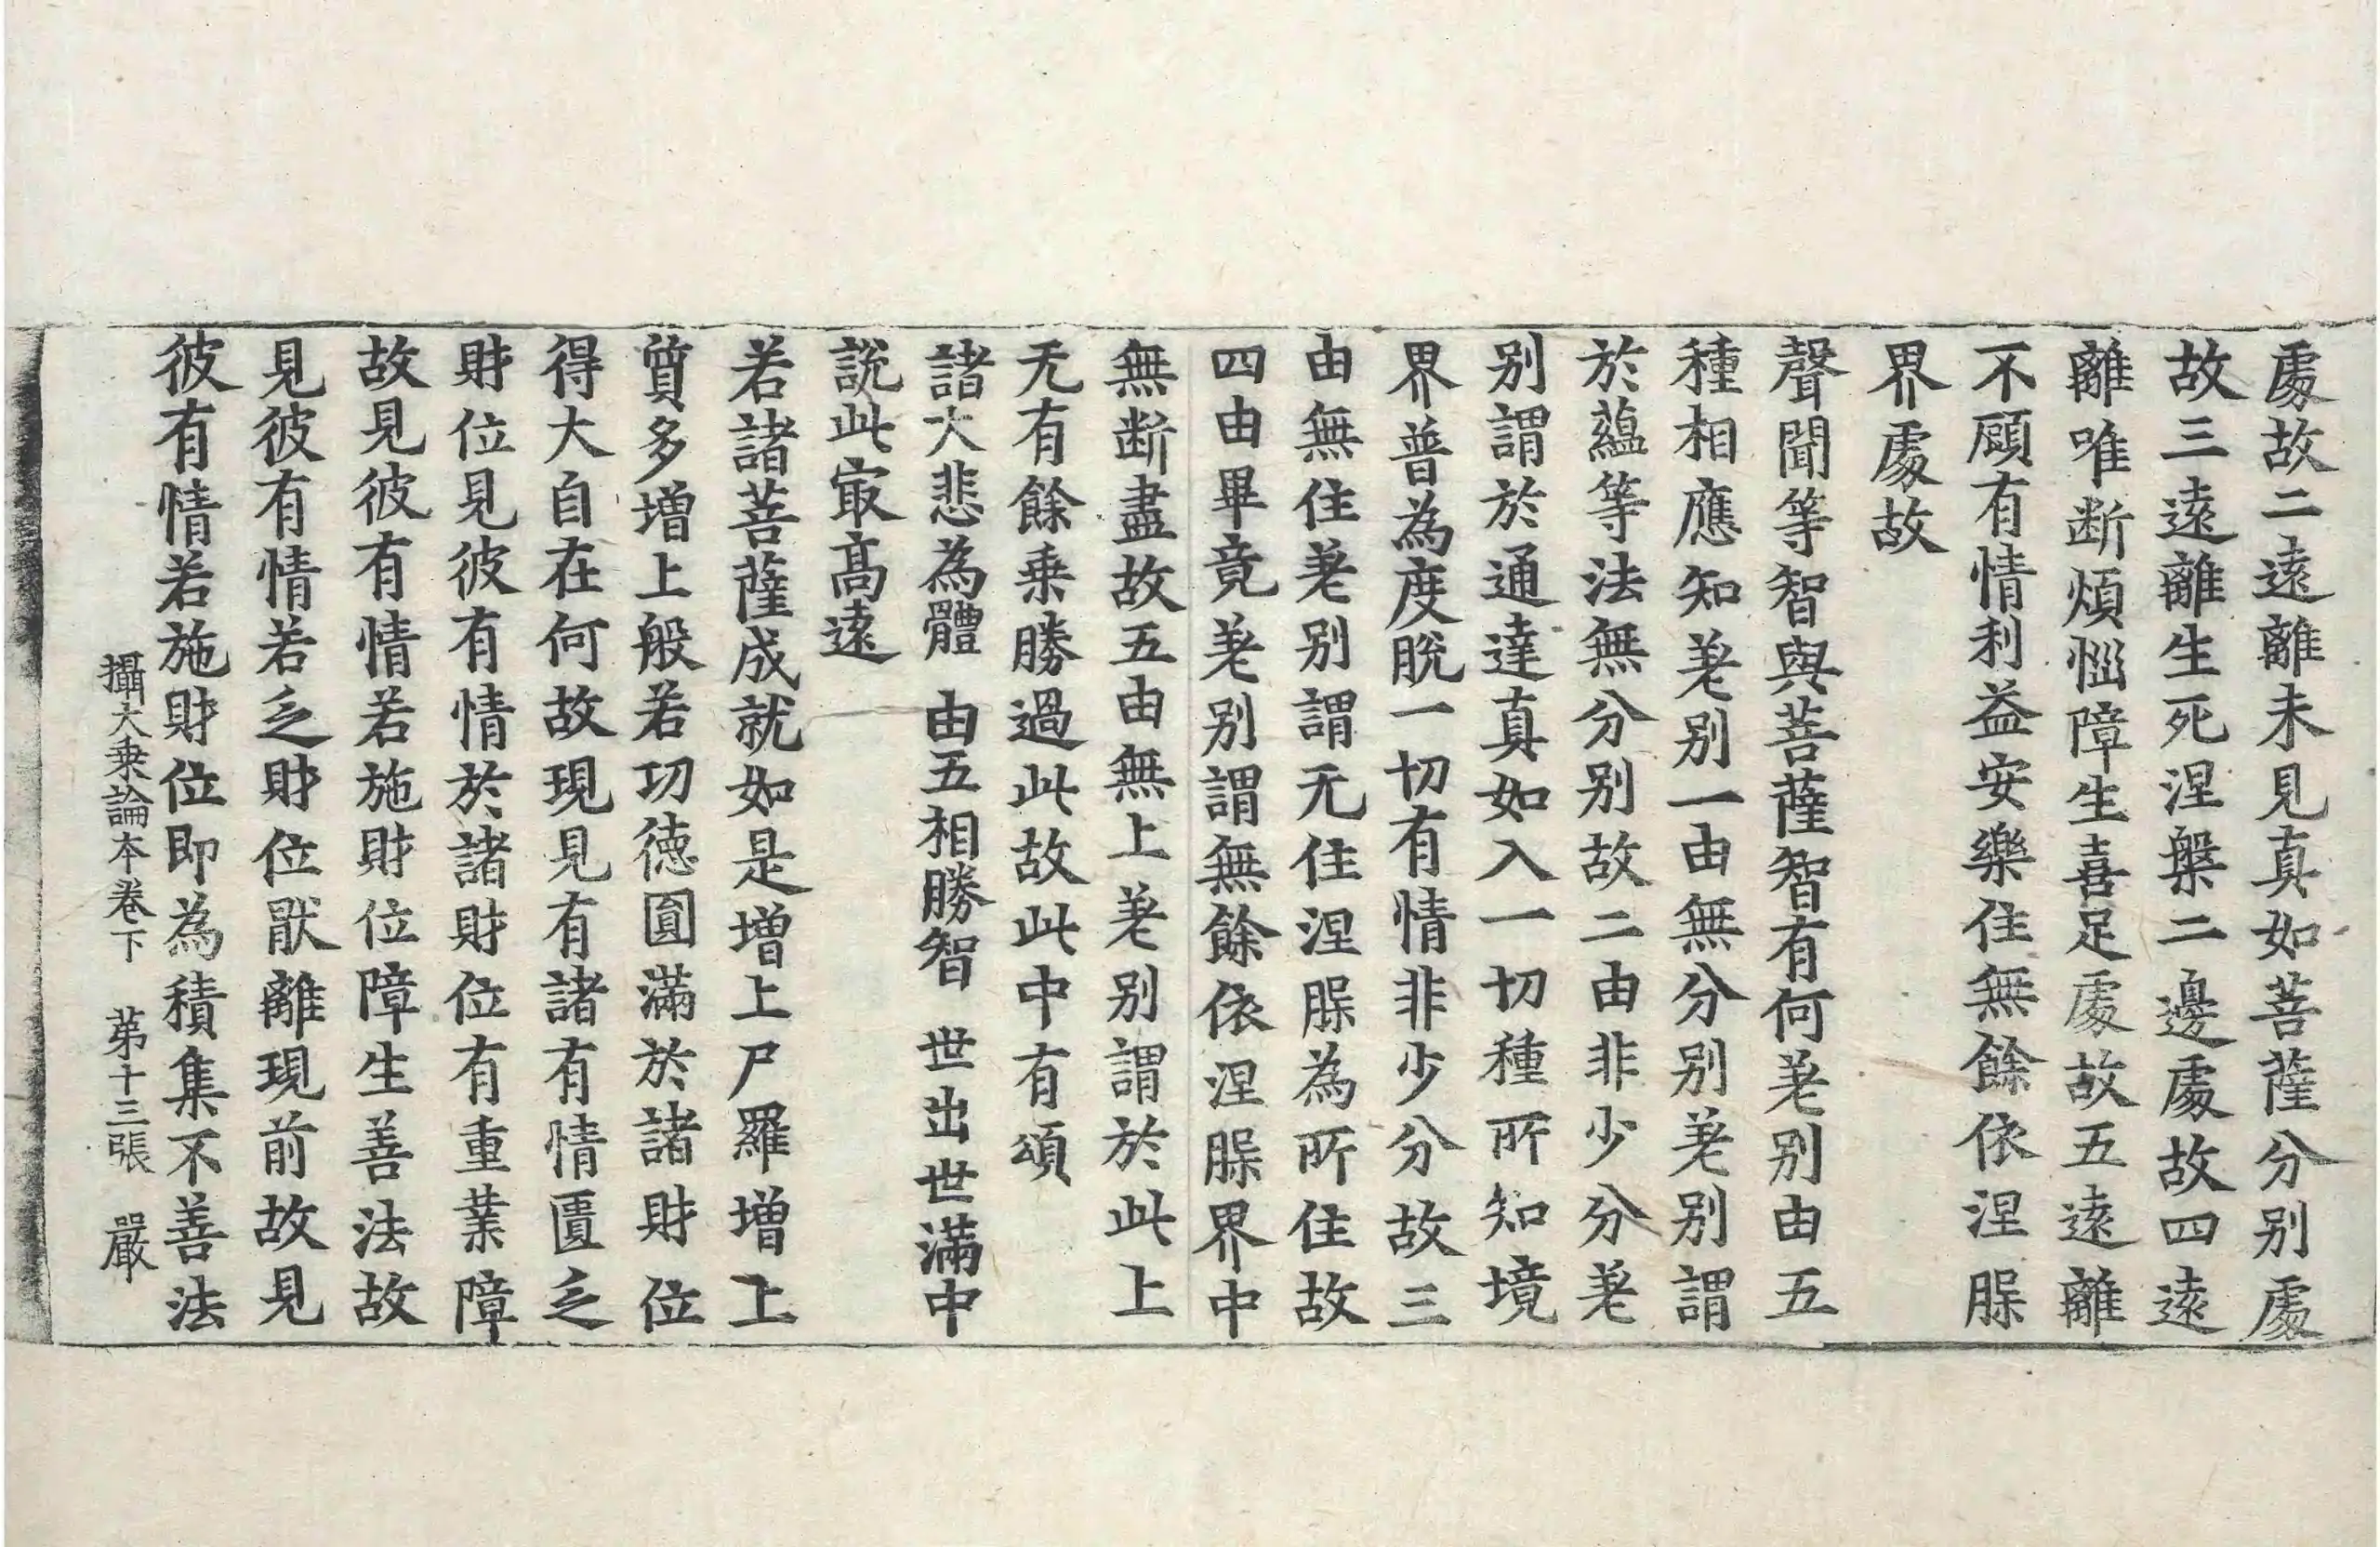 處故二遠離未見真如菩薩分別處
故三遠離生死涅槃二邊處故四遠
離唯断煩惱障生喜足處故五遠離
不顧有情利益安樂住無餘依涅槃
界處故
聲聞等智與菩薩智有何差別由五
種相應知差別一由無分別差別謂
於蘊等法無分別故二由非少分差
別謂於通達真如入一切種所知境
界普為度脫一切有情非少分故三
由無住差別謂无住涅槃為所住故
四由畢竟差別謂無餘依涅槃界中
無断盡故五由無上差別謂於此上
无有餘乗勝過此故此中有頌
諸大悲為體　由五相勝智　世出世滿中
說此㝡高遠
若諸菩薩成就如是增上尸羅增上
質多增上般若功德圓滿於諸財位
得大自在何故現見有諸有情匱乏
財位見彼有情於諸財位有重業障
故見彼有情若施財位障生善法故
見彼有情若乏財位厭離現前故見
彼有情若施財位即為積集不善法
攝大乗論本卷下　第十三張　嚴